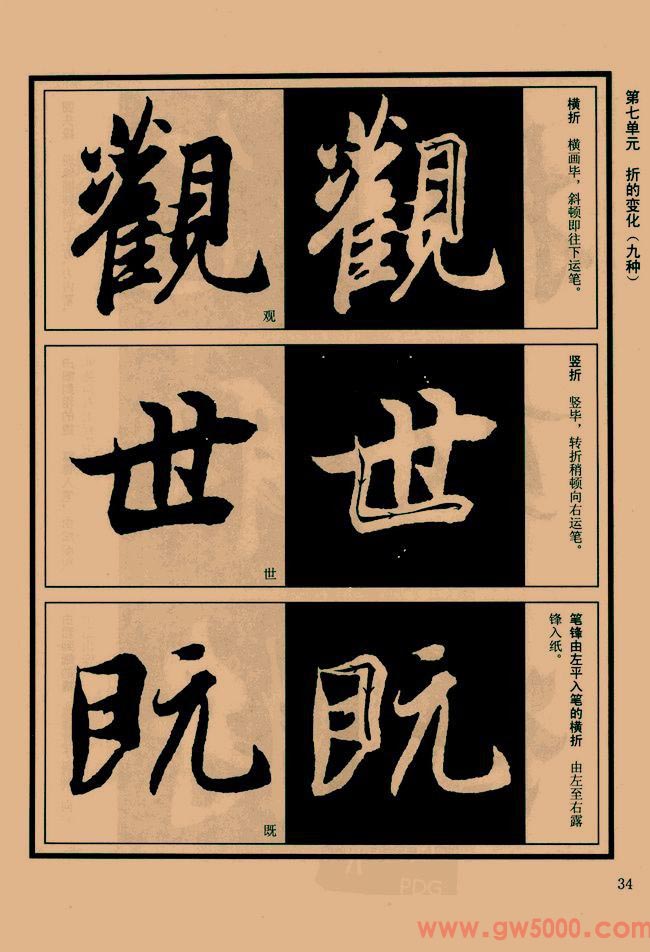 第七单元 折的变化（九种）
横折 横画毕，斜顿即往下运笔。
觀
觀
观
竖折 竖毕，转折稍顿向右运笔。
世
世
世
笔锋由左平入笔的横折 由左至右露
锋入纸。
既
既
既
34
PDG
www.gw5000.com